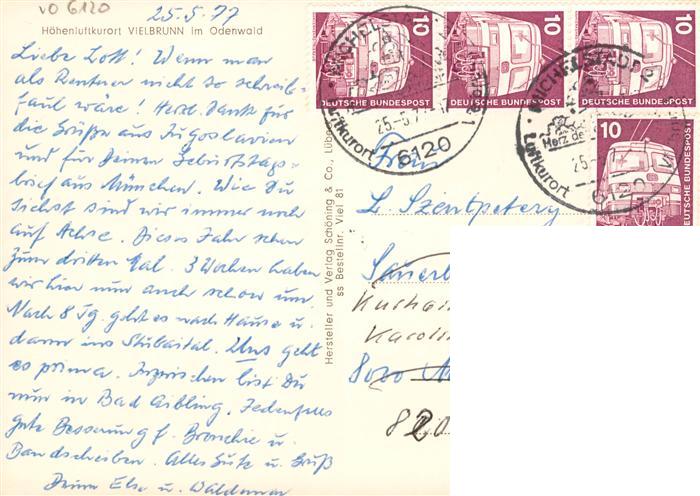 VO 6120
25.5.77
Höhenluftkurort VIELBRUNN im Odenwald
Liebe Lott! Wenn man
als Rentner nicht so schreib-
faul wäre! Herzl. Dank für
die Grüße aus Jugoslavien
und für Deinen Geburtstags-
brief aus München. Wie Du
siehst sind wir immer noch
auf Achse. Dieses Jahr schon
zum dritten Mal. 3 Wochen haben
wir hier nun auch schon um.
Nach 8 Tg. geht es nach Hause u.
dann ins Stubaital. Uns geht
es prima. Inzwischen bist Du
nun in Bad Aibling. Jedenfalls
gute Besserung f. Bronchie u.
Bandscheiben. Alles Gute u. Gruß
Deine Else u. Waldemar
Hersteller und Verlag Schöning & Co., Lübe
ss Bestellnr. Viel 81
10
10
10
DEUTSCHE BUNDESPOST
DEUTSCHE BUNDESPOST
DEUTSCHE BUNDESPOST
10
DEUTSCHE BUNDESPOST
MICHELSTADT
25.-5.7
Luftkurort
6120
MICHELSTADT
Herz de
25.-
Luftkurort
6120
Frau
L Szentpetery
Sauerl
Kurhei
Karoli
8000 M
820